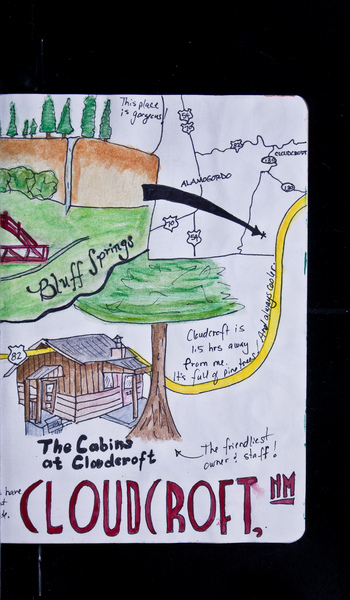 This place
is gorgeous!
54
70
82
CLOUDCROFT
ALAMOGORDO
130
70
54
Bluff Springs
82
Cloudcroft is
1.5 hrs away
from me.
It's full of pine trees! And always cooler.
The Cabins
at Cloudcroft
The friendliest
owner & staff!
have
CLOUDCROFT, NM